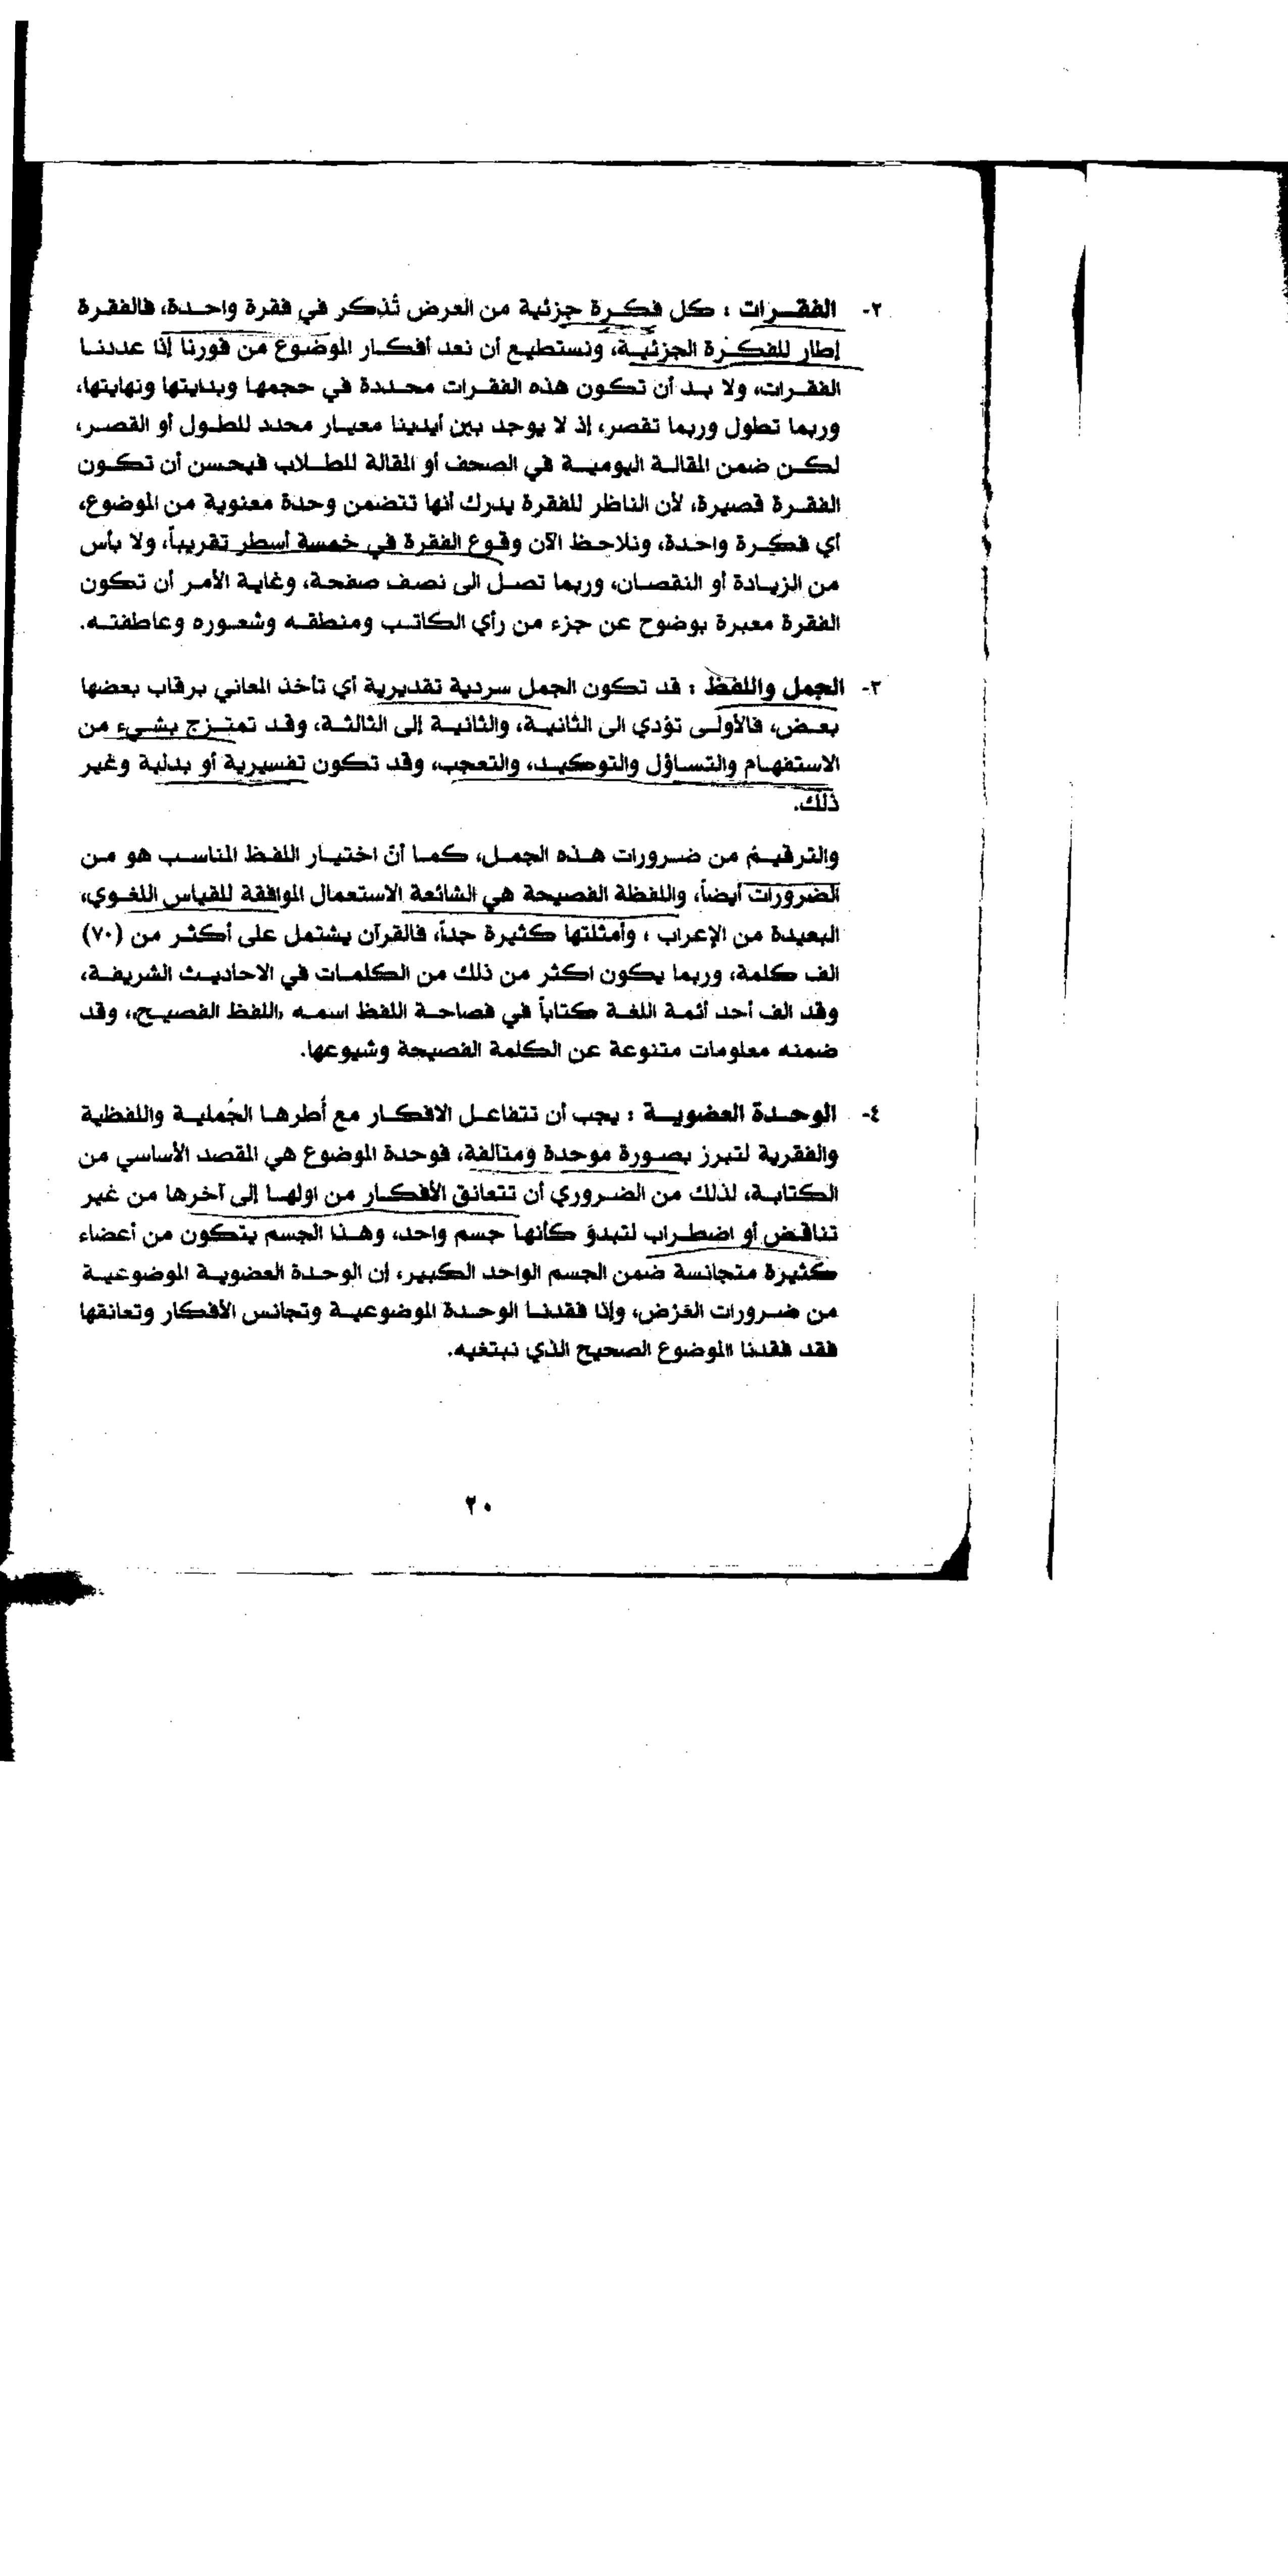 ٢- الفقرات : كل فكرة جزئية من العرض تُذكر في فقرة واحدة، فالفقرة
إطار للفكرة الجزئية، ونستطيع أن نعد أفكار الموضوع من فورنا إذا عددنا
الفقرات، ولا بد أن تكون هذه الفقرات محددة في حجمها وبدايتها ونهايتها،
وربما تطول وربما تقصر، إذ لا يوجد بين أيدينا معيار محدد للطول أو القصر،
لكن ضمن المقالة اليومية في الصحف أو المقالة للطلاب فيحسن أن تكون
الفقرة قصيرة، لأن الناظر للفقرة يدرك أنها تتضمن وحدة معنوية من الموضوع،
أي فكرة واحدة، ونلاحظ الآن وقوع الفقرة في خمسة أسطر تقريباً، ولا بأس
من الزيادة أو النقصان، وربما تصل الى نصف صفحة، وغاية الأمر أن تكون
الفقرة معبرة بوضوح عن جزء من رأي الكاتب ومنطقه وشعوره وعاطفته.
٣- الجمل واللفظ : قد تكون الجمل سردية تقديرية أي تأخذ المعاني برقاب بعضها
بعض، فالأولى تؤدي الى الثانية، والثانية إلى الثالثة، وقد تمتزج بشيء من
الاستفهام والتساؤل والتوكيد، والتعجب، وقد تكون تفسيرية أو بدلية وغير
ذلك.
والترقيمُ من ضرورات هذه الجمل، كما أنّ اختيار اللفظ المناسب هو من
الضرورات أيضاً، واللفظة الفصيحة هي الشائعة الاستعمال الموافقة للقياس اللغوي،
البعيدة من الإعراب ، وأمثلتها كثيرة جداً، فالقرآن يشتمل على أكثر من (٧٠)
الف كلمة، وربما يكون اكثر من ذلك من الكلمات في الاحاديث الشريفة،
وقد الف أحد أئمة اللغة كتاباً في فصاحة اللفظ اسمه «اللفظ الفصيح»، وقد
ضمنه معلومات متنوعة عن الكلمة الفصيحة وشيوعها.
٤- الوحدة العضوية : يجب أن تتفاعل الافكار مع أُطرها الجُملية واللفظية
والفقرية لتبرز بصورة موحدة ومتالفة، فوحدة الموضوع هي المقصد الأساسي من
الكتابة، لذلك من الضروري أن تتعانق الأفكار من اولها إلى آخرها من غير
تناقض أو اضطراب لتبدوَ كأنها جسم واحد، وهذا الجسم يتكون من أعضاء
كثيرة متجانسة ضمن الجسم الواحد الكبير، إن الوحدة العضوية الموضوعية
من ضرورات الغرض، وإذا فقدنا الوحدة الموضوعية وتجانس الأفكار وتعانقها
فقد فقدنا الموضوع الصحيح الذي نبتغيه.
٢٠